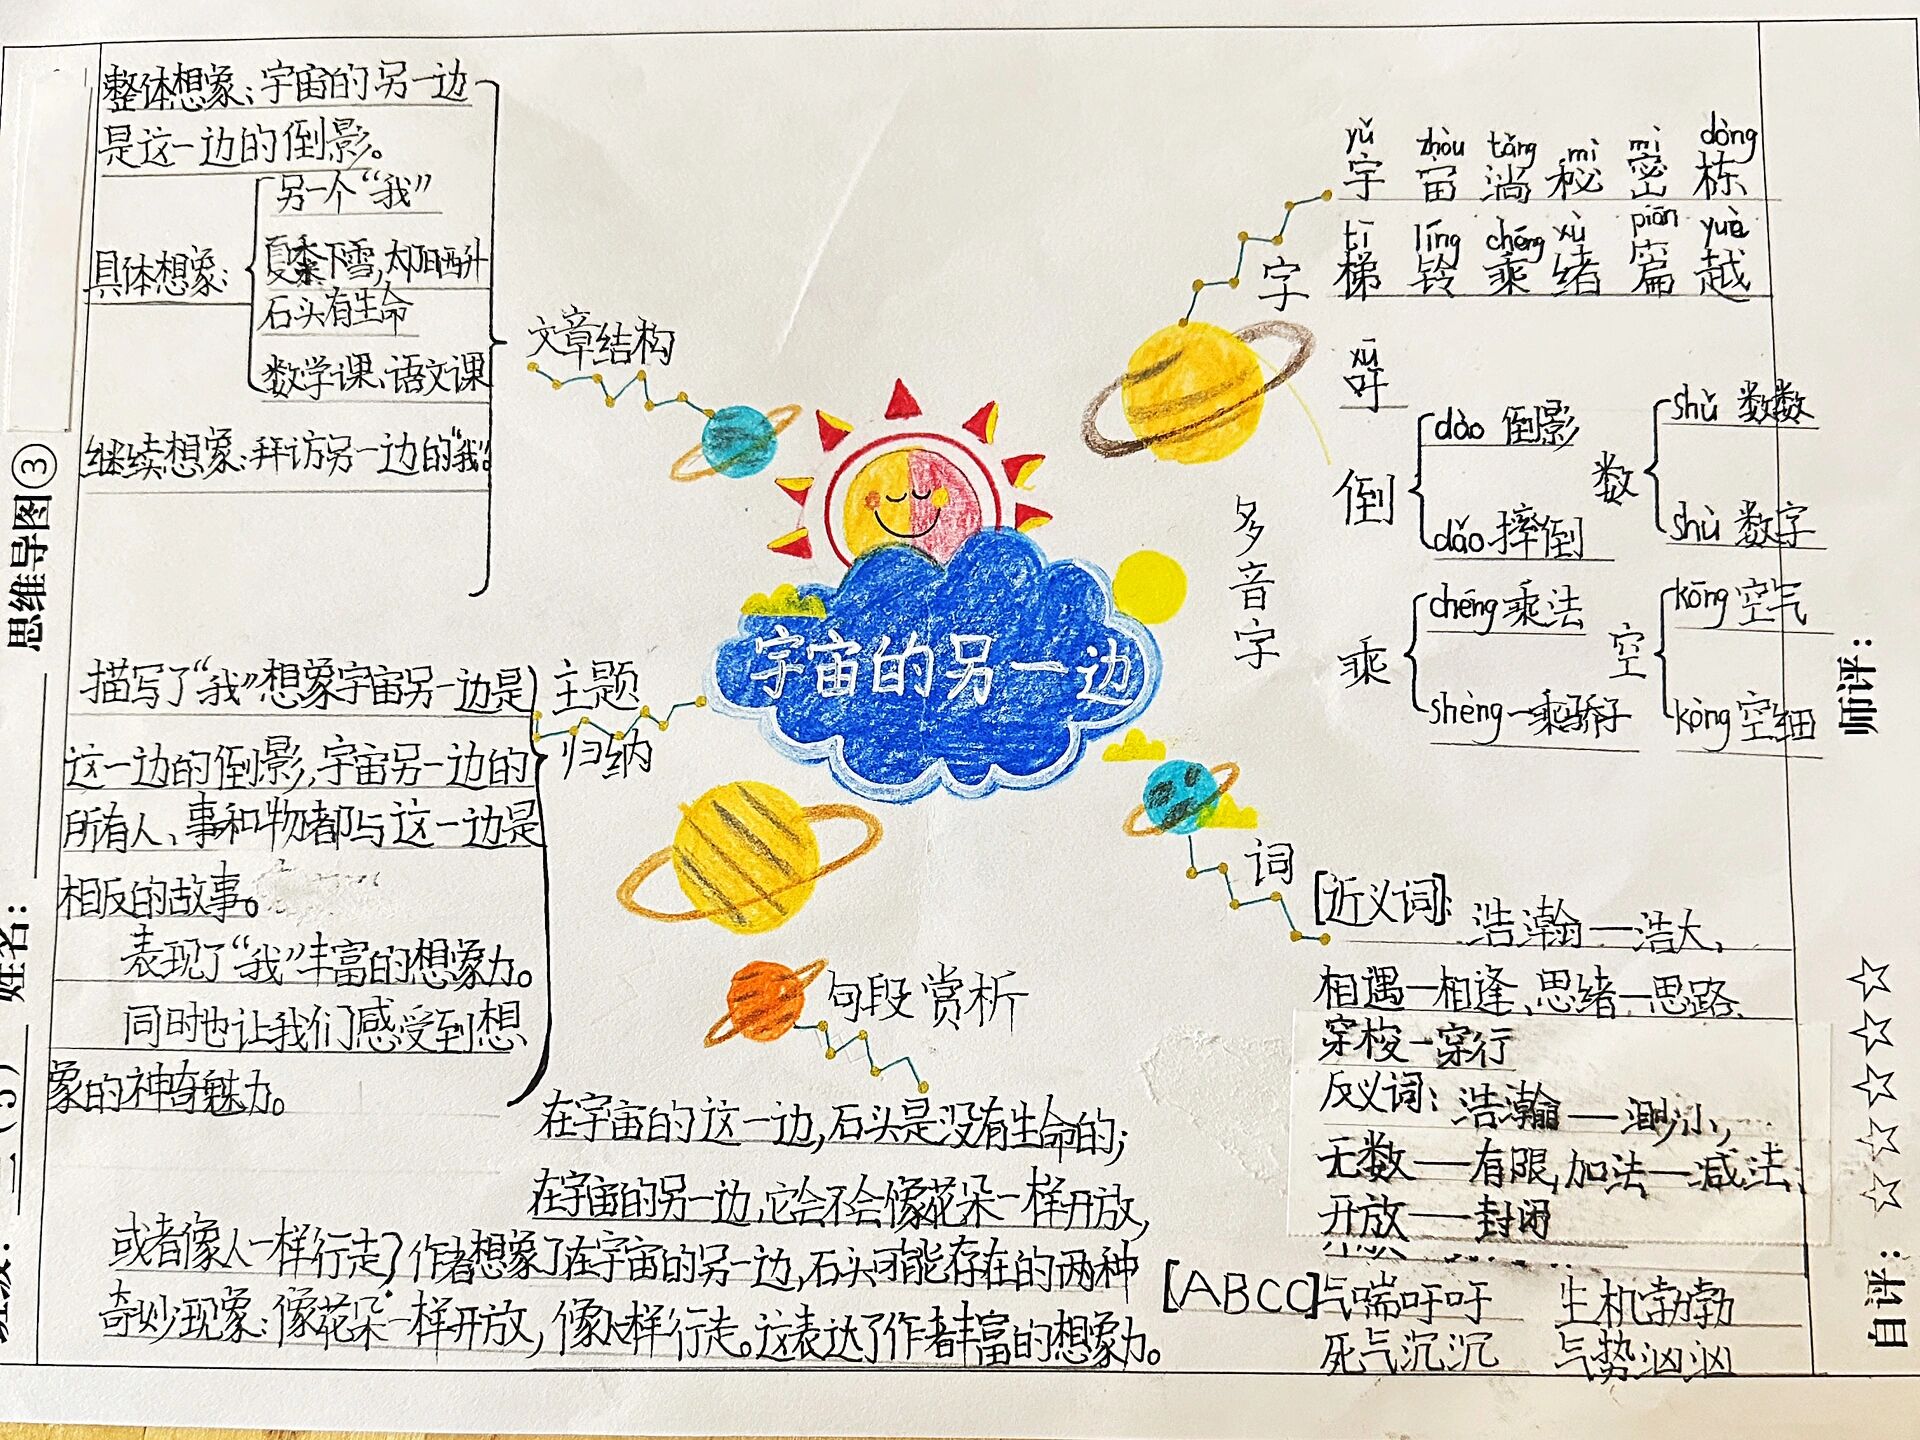 整体想象:宇宙的另一边
是这一边的倒影。
具体想象:
另一个“我”
夏季下雪,太阳西升
石头有生命
数学课、语文课
继续想象:拜访另一边的“我”。
文章结构
宇宙的另一边
主题
归纳
描写了“我”想象宇宙另一边是
这一边的倒影,宇宙另一边的
所有人、事和物都与这一边是
相反的故事。
表现了“我”丰富的想象力。
同时也让我们感受到想
象的神奇魅力。
句段赏析
在宇宙的这一边,石头是没有生命的;
在宇宙的另一边,它会不会像花朵一样开放,
或者像人一样行走?作者想象了在宇宙的另一边,石头可能存在的两种
奇妙现象:像花朵一样开放,像人样行走。这表达了作者丰富的想象力。
字
yǔ zhòu tǎng mì mì dòng
宇 宙 淌 秘 密 栋
tī líng chéng xù piān yuè
梯 铃 乘 绪 篇 越
xū
吁
多音字
倒
dào 倒影
dǎo 摔倒
数
shǔ 数数
shù 数字
乘
chéng 乘法
shèng 一乘轿子
空
kōng 空气
kòng 空细
词
[近义词]: 浩瀚—浩大、
相遇—相逢、思绪—思路、
穿梭—穿行
反义词: 浩瀚—渺小,
无数—有限,加法—减法、
开放—封闭
[ABCC]气喘吁吁 生机勃勃
死气沉沉 气势汹汹
思维导图③
姓名:
三(3)
师评:
自评:☆☆☆☆☆